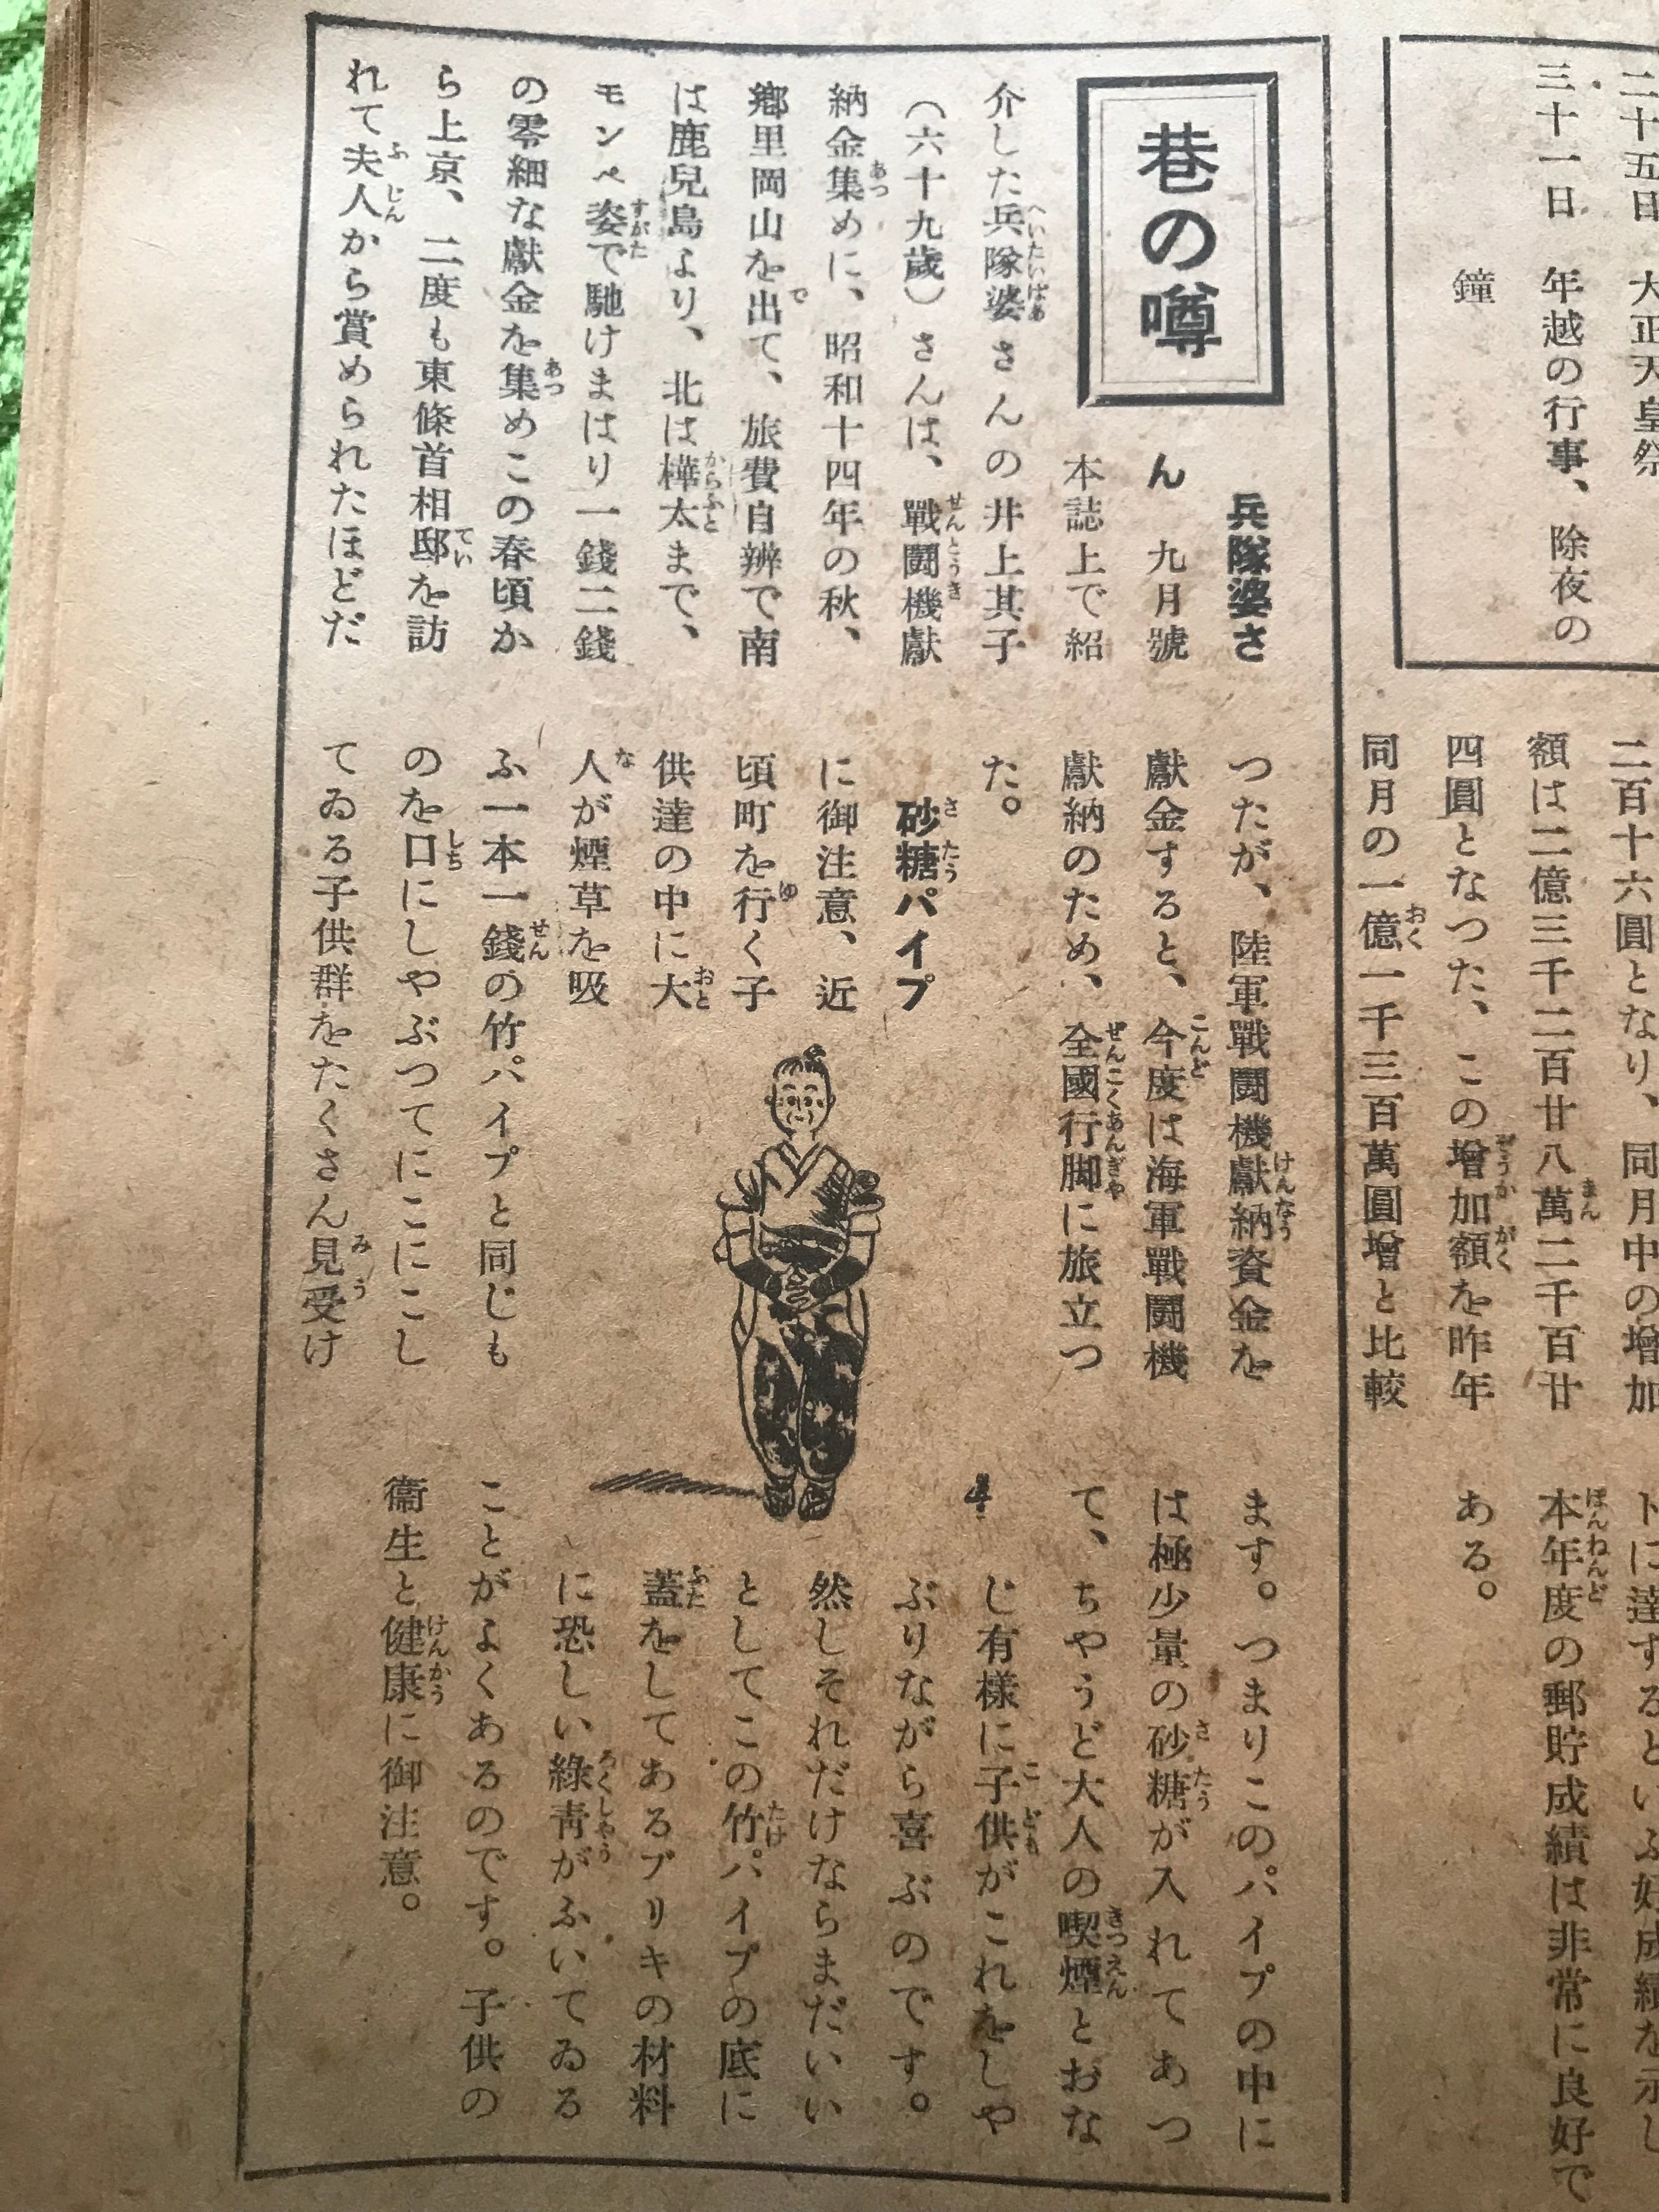 二十五日 大正天皇祭
三十一日 年越の行事、除夜の
鐘
二百十六圓となり、同月中の增加
額は二億三千二百廿八萬二千百廿
四圓となつた、この增加額を昨年
同月の一億一千三百萬圓增と比較
トに達するといふ好成績を示し
本年度の郵貯成績は非常に良好で
ある。
巷の噂
兵隊婆さ
ん 九月號
本誌上で紹
介した兵隊婆さんの井上其子
(六十九歲)さんは、戰鬪機獻
納金集めに、昭和十四年の秋、
鄕里岡山を出て、旅費自辨で南
は鹿兒島より、北は樺太まで、
モンペ姿で馳けまはり一錢二錢
の零細な獻金を集めこの春頃か
ら上京、二度も東條首相邸を訪
れて夫人から賞められたほどだ
つたが、陸軍戰鬪機獻納資金を
獻金すると、今度は海軍戰鬪機
獻納のため、全國行脚に旅立つ
た。
砂糖パイプ
に御注意、近
頃町を行く子
供達の中に大
人が煙草を吸
ふ一本一錢の竹パイプと同じも
のを口にしやぶつてにこにこし
てゐる子供群をたくさん見受け
ます。つまりこのパイプの中に
は極少量の砂糖が入れてあつ
て、ちやうど大人の喫煙とおな
じ有樣に子供がこれをしや
ぶりながら喜ぶのです。
然しそれだけならまだいい
としてこの竹パイプの底に
蓋をしてあるブリキの材料
に恐しい綠靑がふいてゐる
ことがよくあるのです。子供の
衞生と健康に御注意。